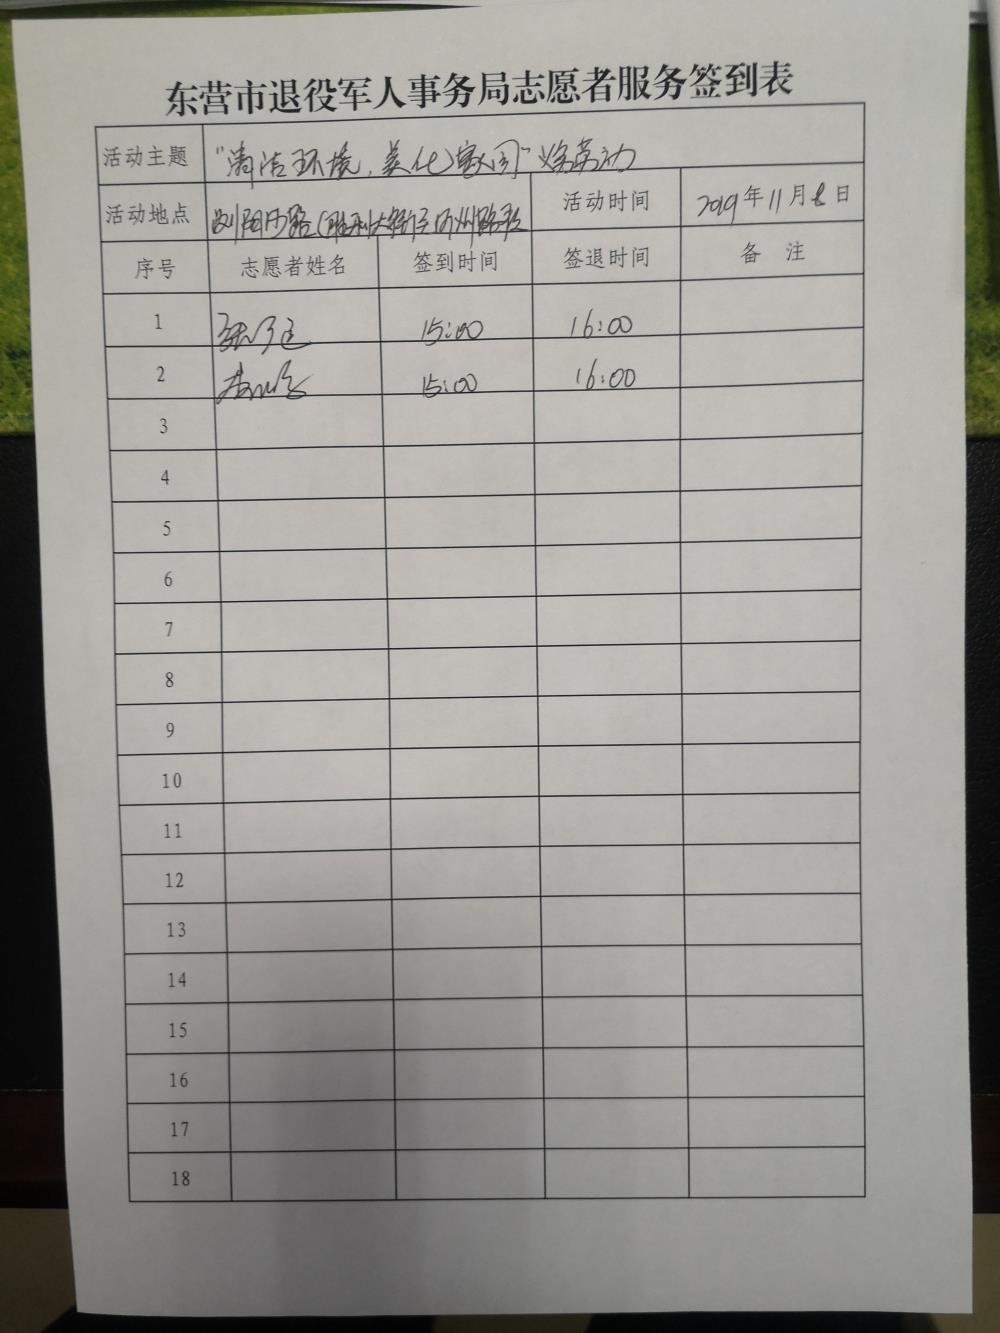 东营市退役军人事务局志愿者服务签到表
活动主题 "清洁环境,美化家园"义务劳动
活动地点 活动时间 2019年11月8日
序号 志愿者姓名 签到时间 签退时间 备 注
1 15:00 16:00
2 15:00 16:00
3
4
5
6
7
8
9
10
11
12
13
14
15
16
17
18